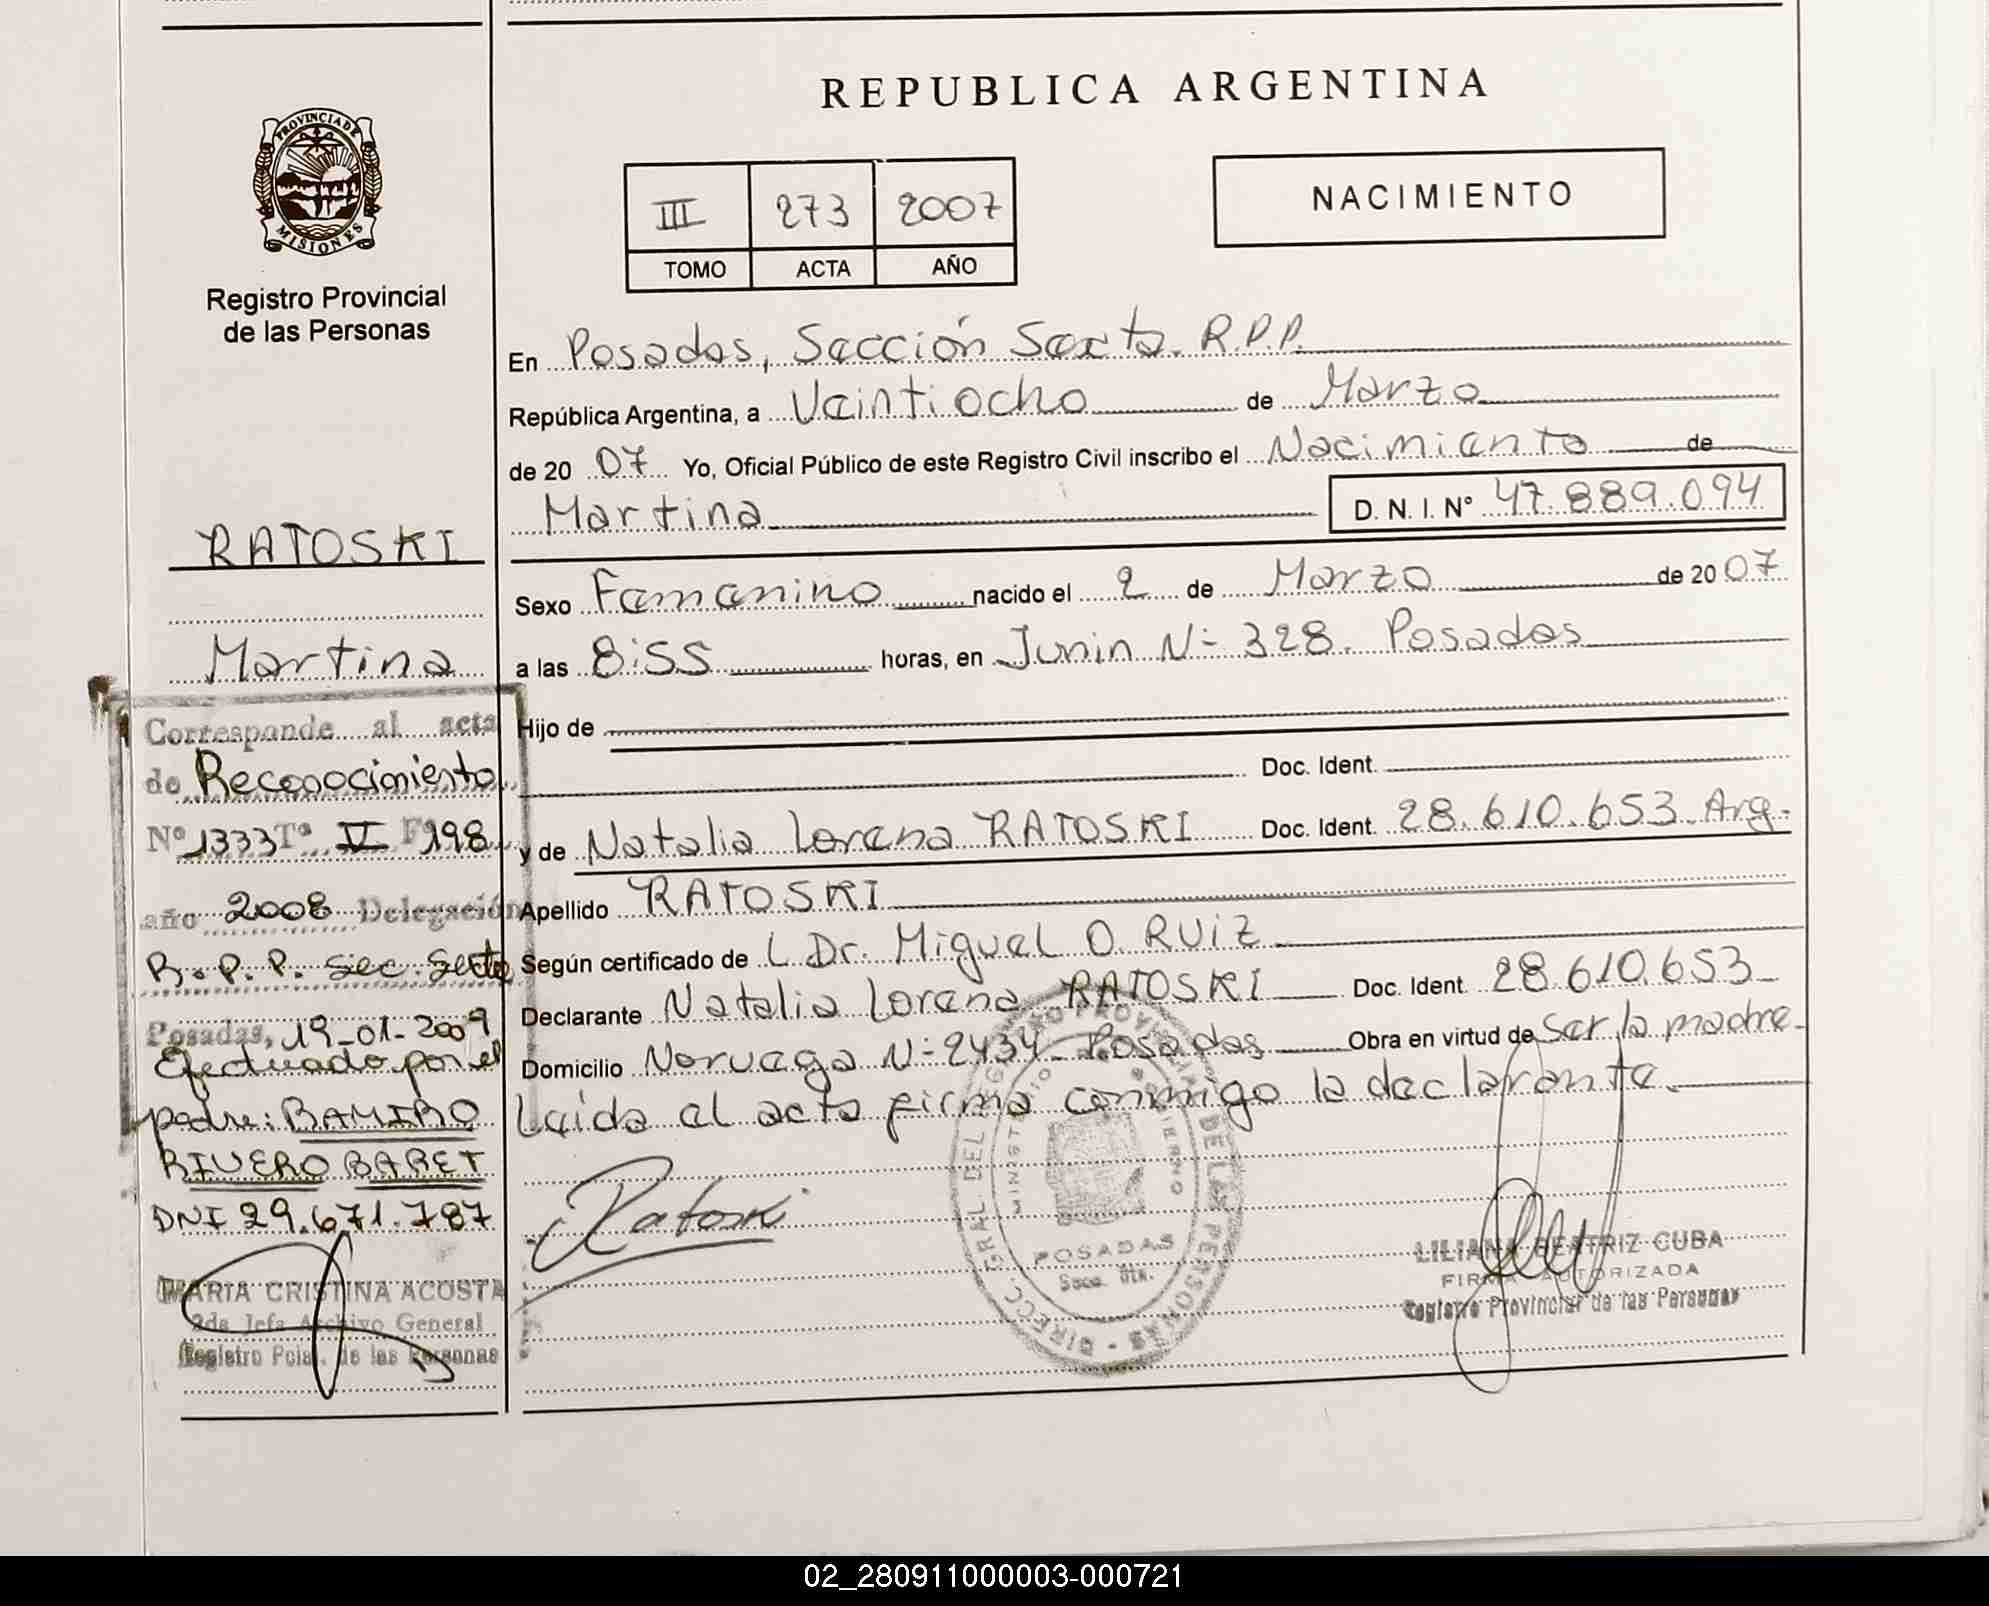 REPUBLICA ARGENTINA
PROVINCIA DE
MISIONES
Registro Provincial
de las Personas
III 273 2007
TOMO ACTA AÑO
NACIMIENTO
En Posadas, Sección Sexta. R.P.P.
República Argentina, a Veintiocho de Marzo
de 20 07 Yo, Oficial Público de este Registro Civil inscribo el Nacimiento de
Martina D. N. I. N° 47.889.094
Sexo Femenino nacido el 2 de Marzo de 20 07
a las 8:55 horas, en Junin N° 328. Posadas
Hijo de
Doc. Ident.
y de Natalia Lorena RATOSKI Doc. Ident. 28.610.653 Arg.
Apellido RATOSKI
Según certificado de L Dr. Miguel O. RUIZ
Declarante Natalia Lorena RATOSKI Doc. Ident. 28.610.653
Domicilio Noruega N° 2434 Posadas Obra en virtud de ser la madre
Leída el acta firma conmigo la declarante.
Ratoski
DIRECC. GRAL. DEL REGISTRO PROVINCIAL DE LAS PERSONAS
MINISTERIO GOBIERNO
POSADAS
Secc. 6ta.
LILIANA BEATRIZ CUBA
FIRMA AUTORIZADA
Registro Provincial de las Personas
RATOSKI
Martina
Corresponde al acta
de Reconocimiento
N° 1333 T° IV F° 198
año 2008 Delegación
R.P.P. Sec. Sexta
Posadas, 19-01-2009
Efectuado por el
padre: RAMIRO
RIVERO BARET
DNI 29.671.787
MARIA CRISTINA ACOSTA
2da Jefa Archivo General
Registro Pcial. de las Personas
02_280911000003-000721